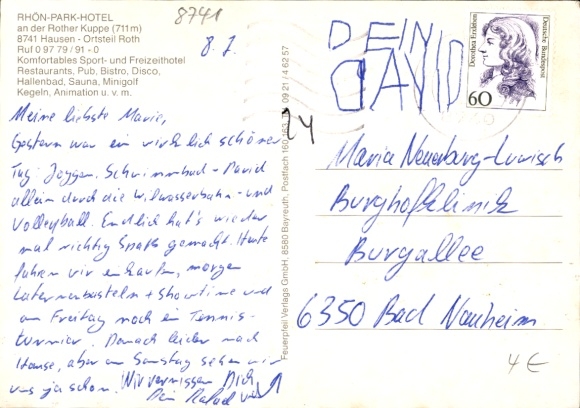 RHÖN-PARK-HOTEL
an der Rother Kuppe (711m)
8741 Hausen - Ortsteil Roth
Ruf 0 97 79 / 91 - 0
Komfortables Sport- und Freizeithotel
Restaurants, Pub, Bistro, Disco,
Hallenbad, Sauna, Minigolf
Kegeln, Animation u. v. m.
8741
8. 7.
Meine liebste Maria,
Gestern war ein wirklich schöner
Tag: Joggen, Schwimmbad - David
allein durch die Wilwasserbahn - und
Volleyball. Endlich hat's wieder
mal richtig Spaß gemacht. Heute
fahren wir einkaufen, morgen
Laternenbasteln + Showtime und
am Freitag noch ein Tennis-
turnier. Danach leider nach
Hause, aber am Samstag sehen wir
uns ja schon. Wir vermissen Dich
Dein
Feuerpfeil Verlags GmbH, 8580 Bayreuth, Postfach 160 163, 09 21 / 4 62 57
DEIN
DAVID
Dorothea Erxleben
Deutsche Bundespost
60
Maria Neuerburg-
Burghofklinik
Burgallee
6350 Bad Nauheim
4 €